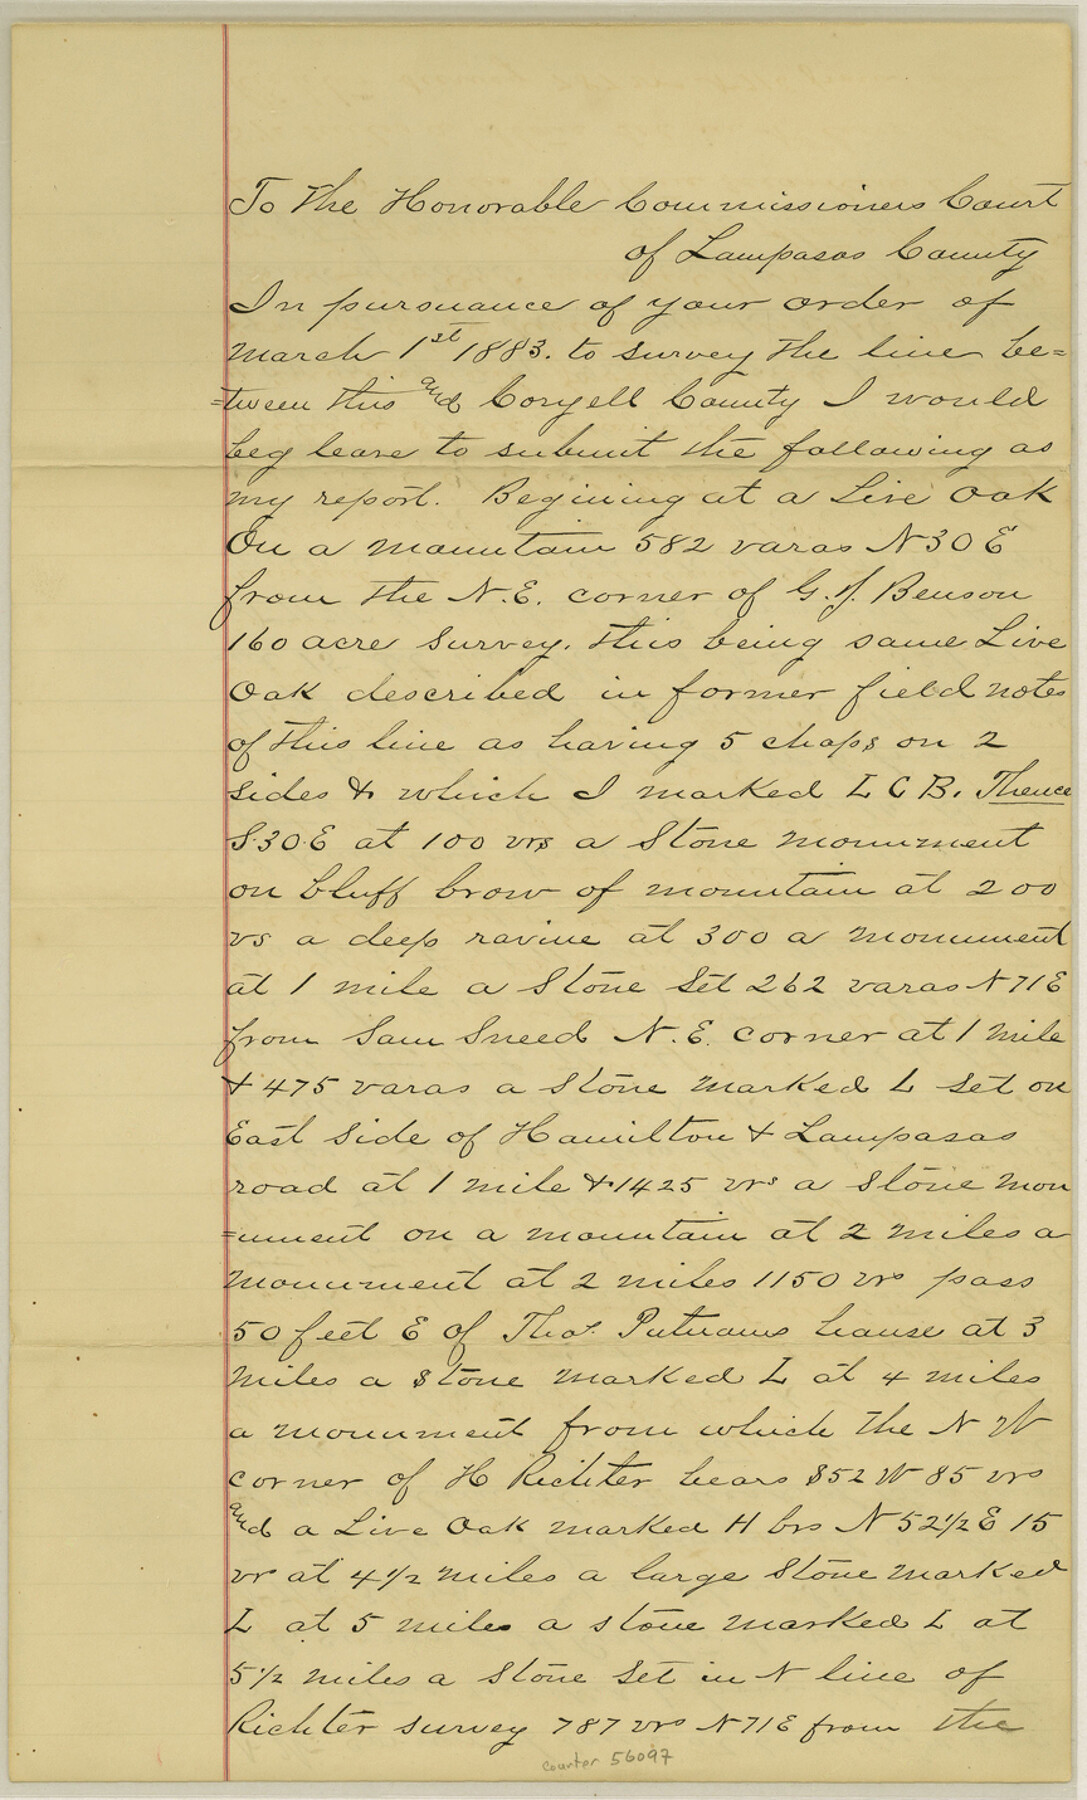 To the Honorable Commissioners Court
of Lampasas County
In pursuance of your order of
March 1st 1883. to survey the line be=
=tween this and Coryell County I would
beg leave to submit the following as
my report. Begining at a Live Oak
On a mountain 582 varas N 30 E
from the N.E. corner of G. J. Benson
160 acre survey. this being same Live
Oak described in former field notes
of this line as having 5 chops on 2
sides & which I marked L C B. Thence
S. 30. E at 100 vrs a Stone monument
on bluff brow of mountain at 200
vs a deep ravine at 300 a monument
at 1 mile a Stone Set 262 varas N 71 E
from Sam Sneed N. E. corner at 1 mile
& 475 varas a Stone marked L set on
East Side of Hamilton & Lampasas
road at 1 mile & 1425 vrs a Stone mon
=ument on a mountain at 2 miles a
monument at 2 miles 1150 vrs pass
50 feet E of Thos. Putnams house at 3
miles a Stone marked L at 4 miles
a monument from which the N W
corner of H Richter bears S 52 W 85 vrs
and a Live Oak marked H brs N 52 1/2 E 15
vr at 4 1/2 miles a large Stone marked
L at 5 miles a stone marked L at
5 1/2 miles a Stone Set in N line of
Richter survey 787 vrs N 71 E from the
counter 56097